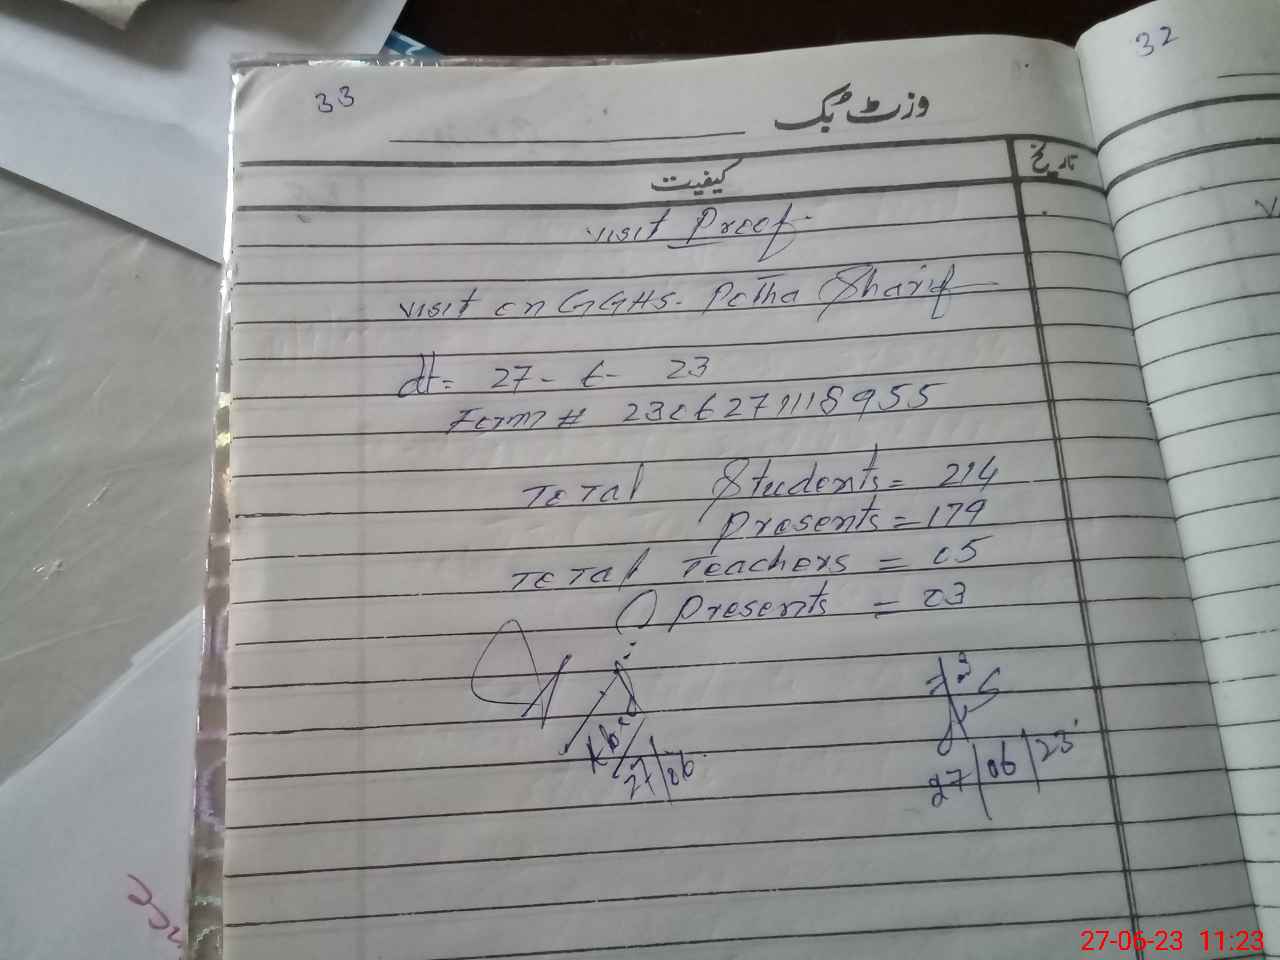 32
33
وزٹ بک
کیفیت
تاریخ
visit Proof.
visit on GGHS. Potha Sharif
dt= 27- 6- 23
Form # 2306271118955
Total Students = 214
Presents = 179
Total Teachers = 05
Presents = 03
27/06
27/06/23
27-06-23 11:23